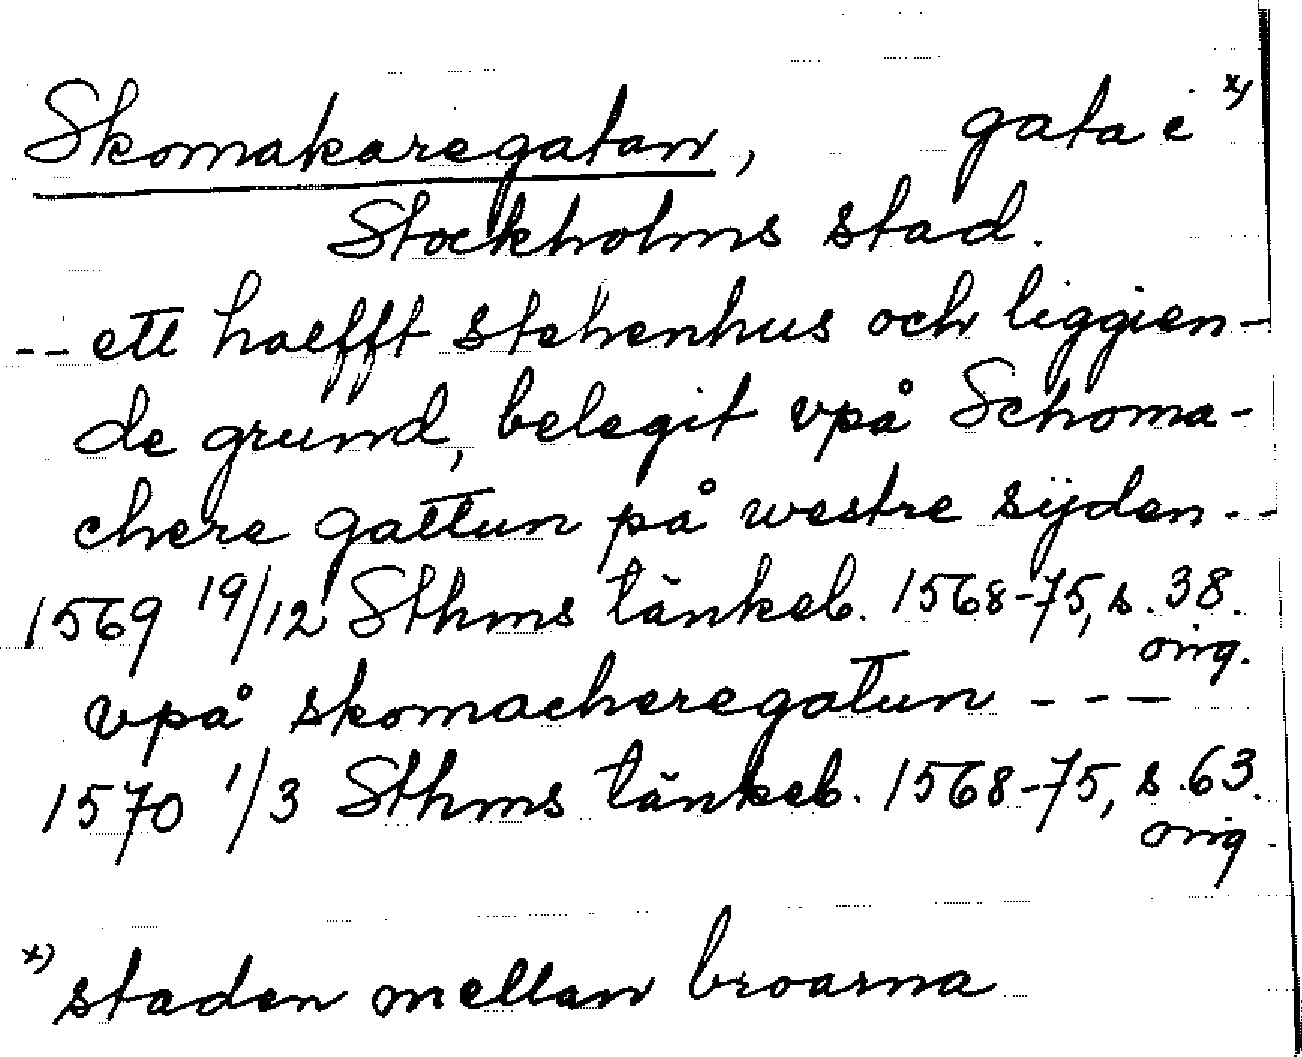 Skomakaregatan, gata i x)
Stockholms stad.
-- ett haefft stehenhus och liggien-
de grund, belegit vpå Schoma-
chere gattun på westre sÿden --
1569 19/12 Sthms tänkeb. 1568-75, s. 38.
orig.
vpå skomacheregatun ---
1570 1/3 Sthms tänkeb. 1568-75, s. 63.
orig.
x) staden mellan broarna